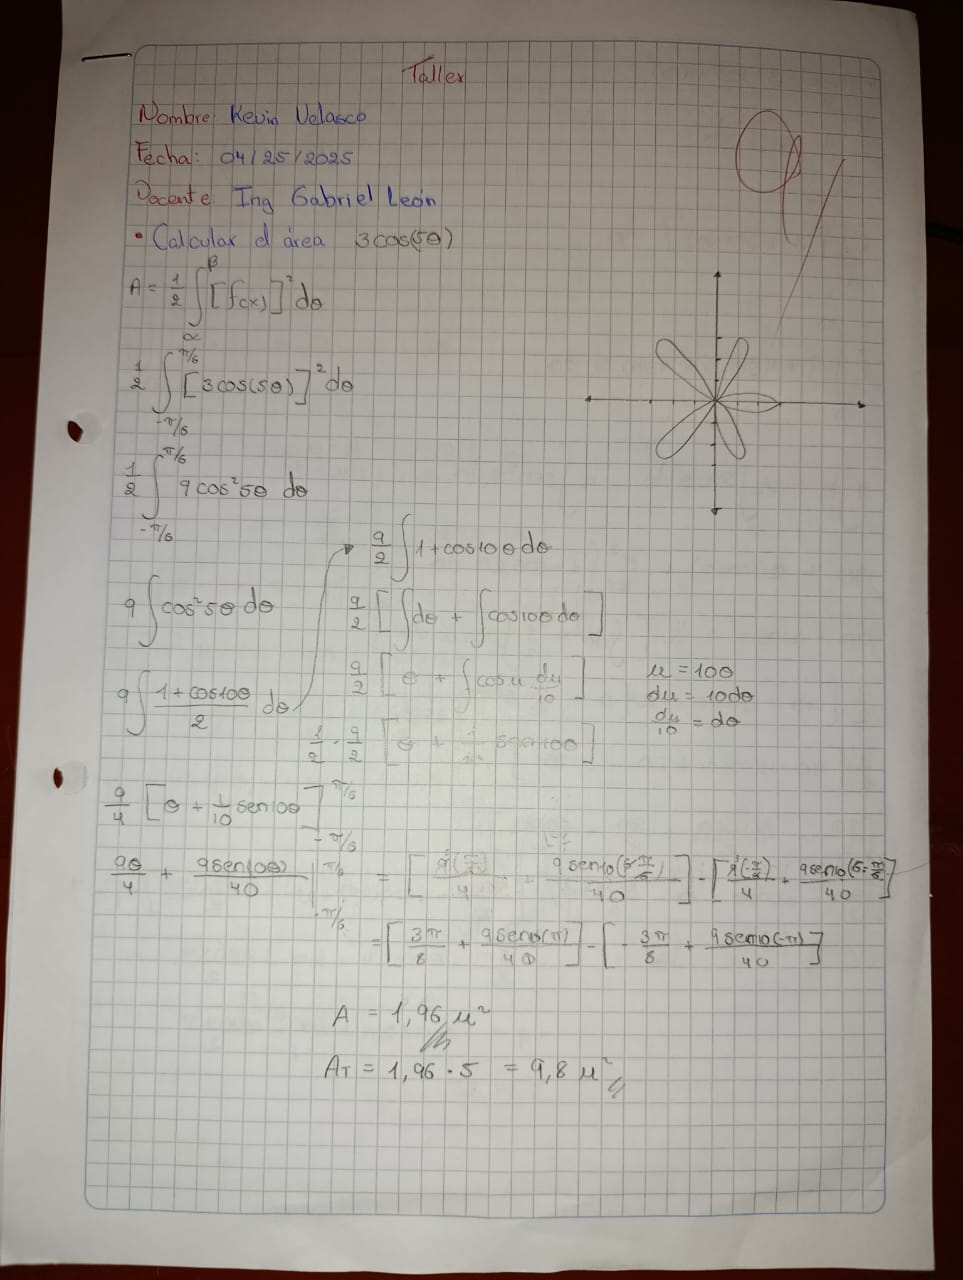 Taller
Nombre: Kevin Velasco
Fecha: 04/25/2025
Docente: Ing Gabriel León
• Calcular el área 3cos(5θ)
A = 1/2 ∫_α^β [f(x)]² dθ
1/2 ∫_{-π/6}^{π/6} [3cos(5θ)]² dθ
1/2 ∫_{-π/6}^{π/6} 9cos²5θ dθ
9 ∫ cos²5θ dθ
9 ∫ (1+cos10θ)/2 dθ
9/2 ∫ 1+cos10θ dθ
9/2 [∫dθ + ∫cos10θ dθ]
9/2 [θ + ∫cosu du/10]
u = 10θ
du = 10dθ
du/10 = dθ
1/2 · 9/2 [θ + sen10θ]
9/4 [θ + 1/10 sen10θ]_{-π/6}^{π/6}
9θ/4 + 9sen10θ/40 |_{-π/6}^{π/6} = [/4 + 9sen10()/40] - [/4 + 9sen10()/40]
= [3π/8 + 9sen10(π)/40] - [-3π/8 + 9sen10(-π)/40]
A = 1,96 u²
A_T = 1,96 · 5 = 9,8 u²